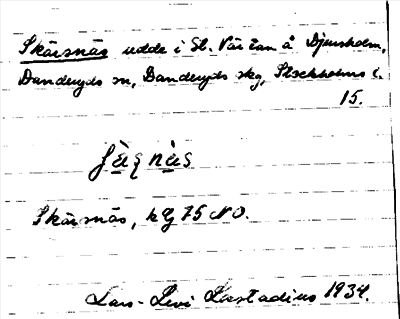 Skärsnäs udde i St. Värtan å Djursholm,
Danderyds sn, Danderyds skg, Stockholms l.
15.
Skärsnäs, kbl 75 NO.
Lars-Levi Læstadius 1934.